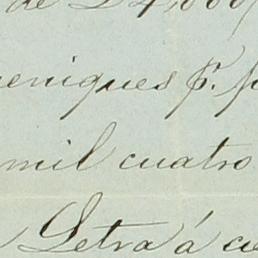 de £4,000
eniques p. p
mil cuatro
Letra á cu